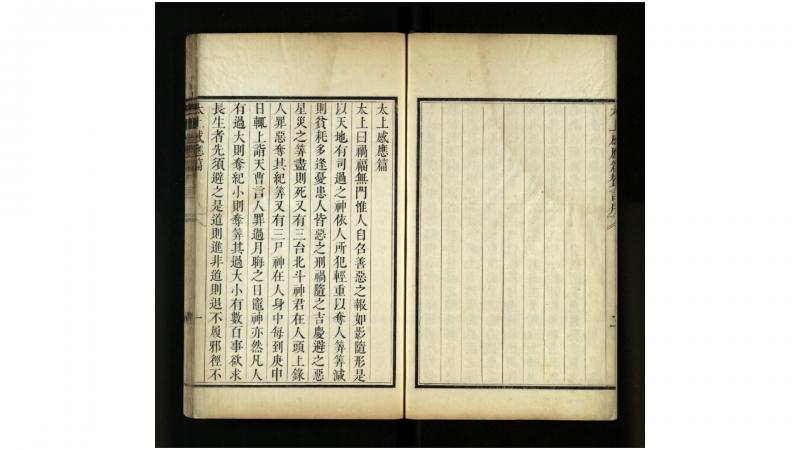 太上感應篇
太上曰禍福無門惟人自召善惡之報如影隨形是
以天地有司過之神依人所犯輕重以奪人筭筭減
則貧耗多逢憂患人皆惡之刑禍隨之吉慶避之惡
星災之筭盡則死又有三台北斗神君在人頭上錄
人罪惡奪其紀筭又有三尸神在人身中每到庚申
日輒上詣天曹言人罪過月晦之日竈神亦然凡人
有過大則奪紀小則奪筭其過大小有數百事欲求
長生者先須避之是道則進非道則退不履邪徑不
太上感應篇
一